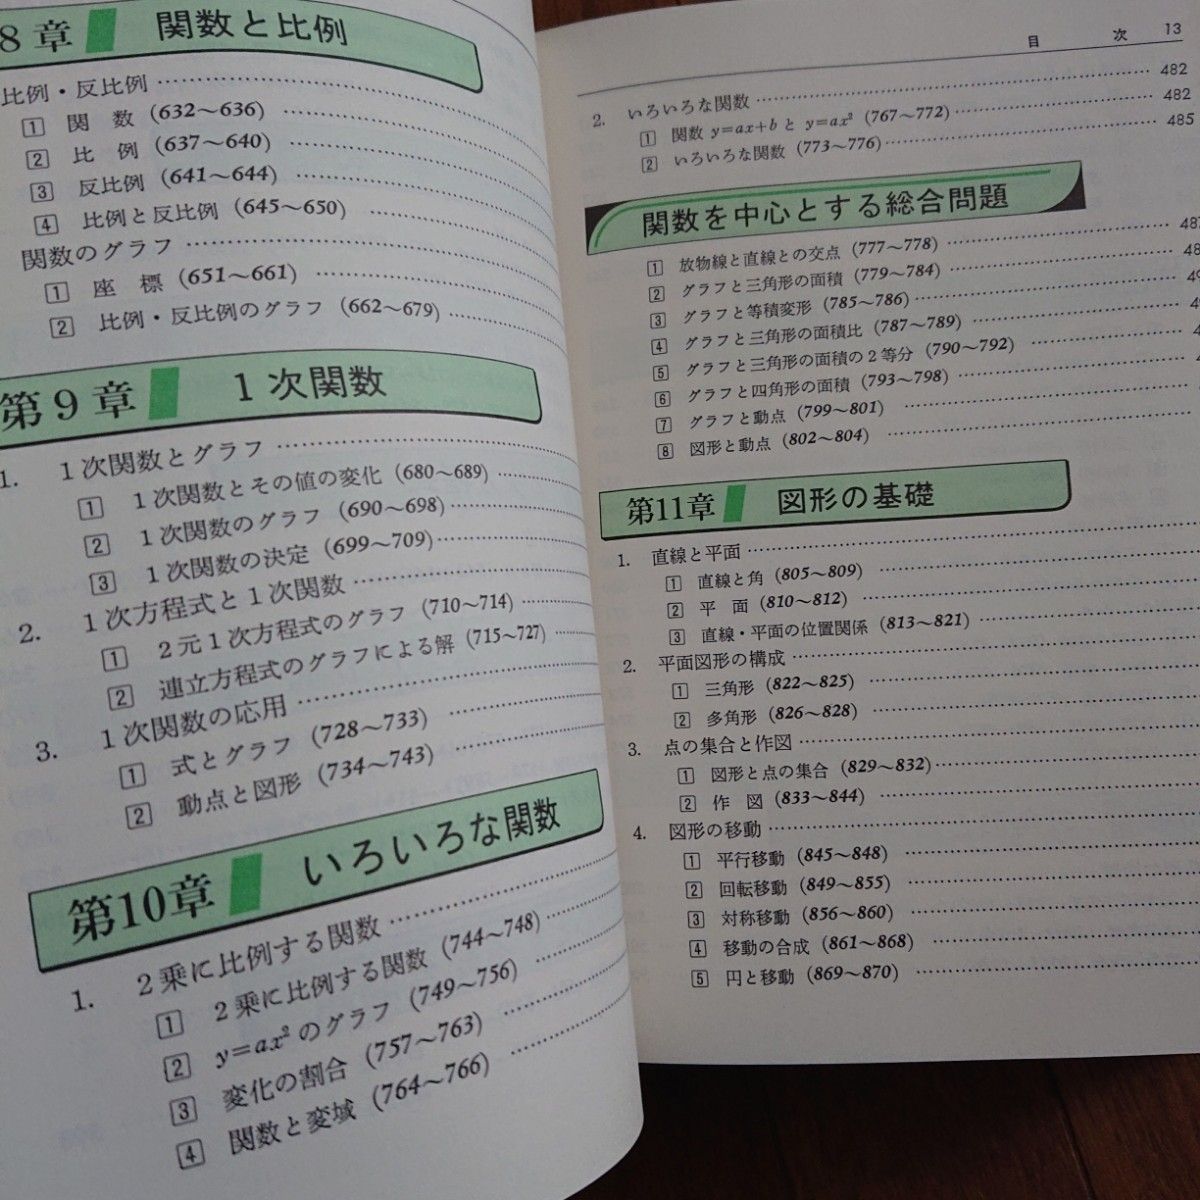 8章 関数と比例
比例・反比例
1 関数 (632～636)
2 比例 (637～640)
3 反比例 (641～644)
4 比例と反比例 (645～650)
関数のグラフ
1 座標 (651～661)
2 比例・反比例のグラフ (662～679)
第9章 1次関数
1. 1次関数とグラフ
1 1次関数とその値の変化 (680～689)
2 1次関数のグラフ (690～698)
3 1次関数の決定 (699～709)
2. 1次方程式と1次関数
1 2元1次方程式のグラフ (710～714)
2 連立方程式のグラフによる解 (715～727)
3. 1次関数の応用
1 式とグラフ (728～733)
2 動点と図形 (734～743)
第10章 いろいろな関数
1. 2乗に比例する関数
1 2乗に比例する関数 (744～748)
2 y=ax²のグラフ (749～756)
3 変化の割合 (757～763)
4 関数と変域 (764～766)
目次 13
2. いろいろな関数 482
1 関数 y=ax+b と y=ax² (767～772) 482
2 いろいろな関数 (773～776) 485
関数を中心とする総合問題
1 放物線と直線との交点 (777～778)
2 グラフと三角形の面積 (779～784)
3 グラフと等積変形 (785～786)
4 グラフと三角形の面積比 (787～789)
5 グラフと三角形の面積の2等分 (790～792)
6 グラフと四角形の面積 (793～798)
7 グラフと動点 (799～801)
8 図形と動点 (802～804)
第11章 図形の基礎
1. 直線と平面
1 直線と角 (805～809)
2 平面 (810～812)
3 直線・平面の位置関係 (813～821)
2. 平面図形の構成
1 三角形 (822～825)
2 多角形 (826～828)
3. 点の集合と作図
1 図形と点の集合 (829～832)
2 作図 (833～844)
4. 図形の移動
1 平行移動 (845～848)
2 回転移動 (849～855)
3 対称移動 (856～860)
4 移動の合成 (861～868)
5 円と移動 (869～870)